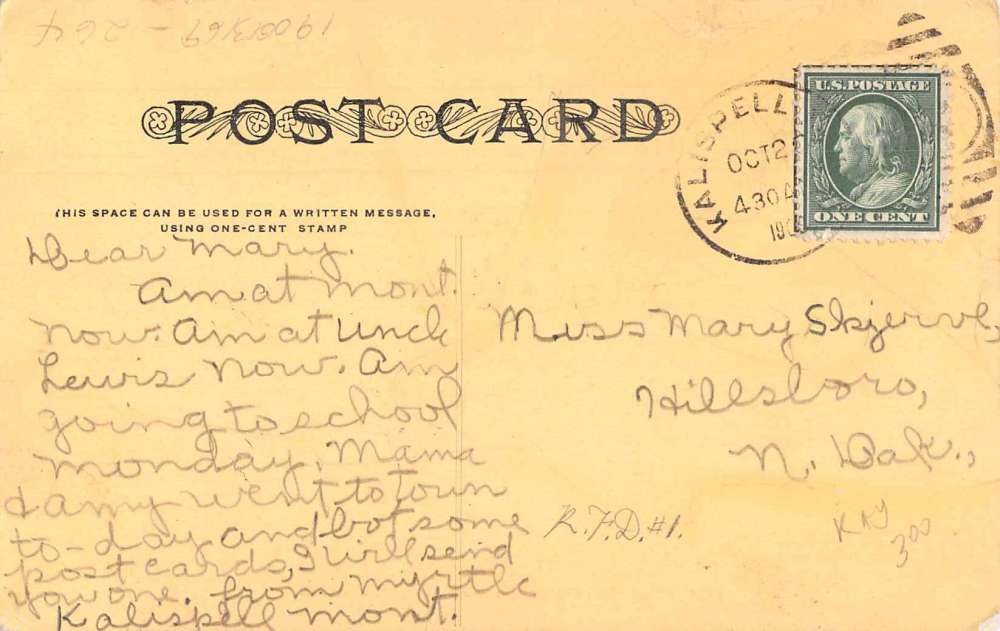 19061369-264
POST CARD
THIS SPACE CAN BE USED FOR A WRITTEN MESSAGE,
USING ONE-CENT STAMP
KALISPELL
OCT 2
430 A
190
U.S. POSTAGE
ONE CENT
Dear Mary.
Am at Mont.
now. Am at Uncle
Lewis now. Am
going to school
Monday. Mama
& Amy went to town
to-day and bot some
post cards, I will send
you one. from Myrtle
Kalispell Mont.
Miss Mary Skjerve,
Hillsboro,
N. Dak.,
R.F.D. #1.
KAY
300